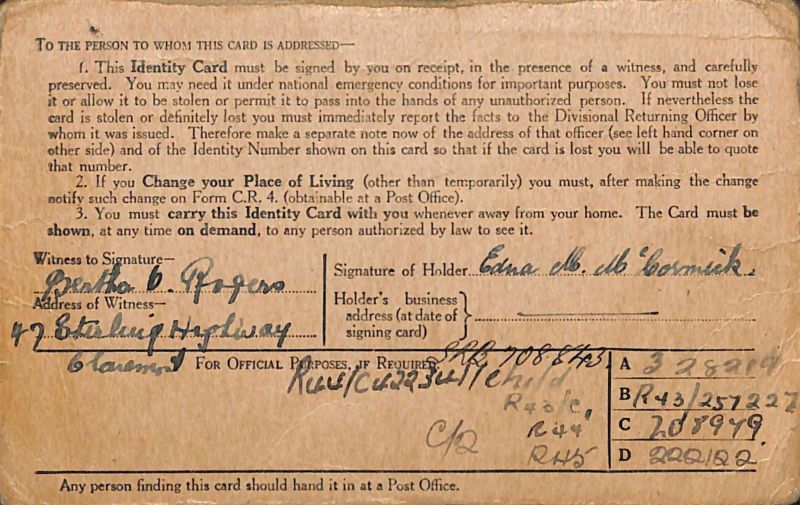 TO THE PERSON TO WHOM THIS CARD IS ADDRESSED—
1. This Identity Card must be signed by you on receipt, in the presence of a witness, and carefully
preserved. You may need it under national emergency conditions for important purposes. You must not lose
it or allow it to be stolen or permit it to pass into the hands of any unauthorized person. If nevertheless the
card is stolen or definitely lost you must immediately report the facts to the Divisional Returning Officer by
whom it was issued. Therefore make a separate note now of the address of that officer (see left hand corner on
other side) and of the Identity Number shown on this card so that if the card is lost you will be able to quote
that number.
2. If you Change your Place of Living (other than temporarily) you must, after making the change
notify such change on Form C.R. 4. (obtainable at a Post Office).
3. You must carry this Identity Card with you whenever away from your home. The Card must be
shown, at any time on demand, to any person authorized by law to see it.
Witness to Signature—
Bertha O. Rogers
Address of Witness—
47 Stirling Highway
Claremont
Signature of Holder Edna M. McCormick.
Holder's business
address (at date of
signing card)
FOR OFFICIAL PURPOSES, IF REQUIRED.
708843
child
R43/C,
R44
R45
C/2
A 328219
B R43/257227
C 208979
D 222122
Any person finding this card should hand it in at a Post Office.